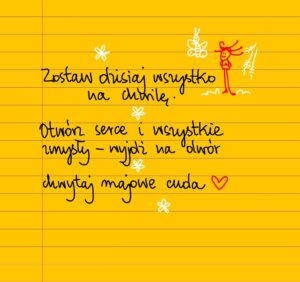 Zostaw dzisiaj wszystko
na chwilę.
Otwórz serce i wszystkie
zmysły - wyjdź na dwór
chwytaj majowe cuda